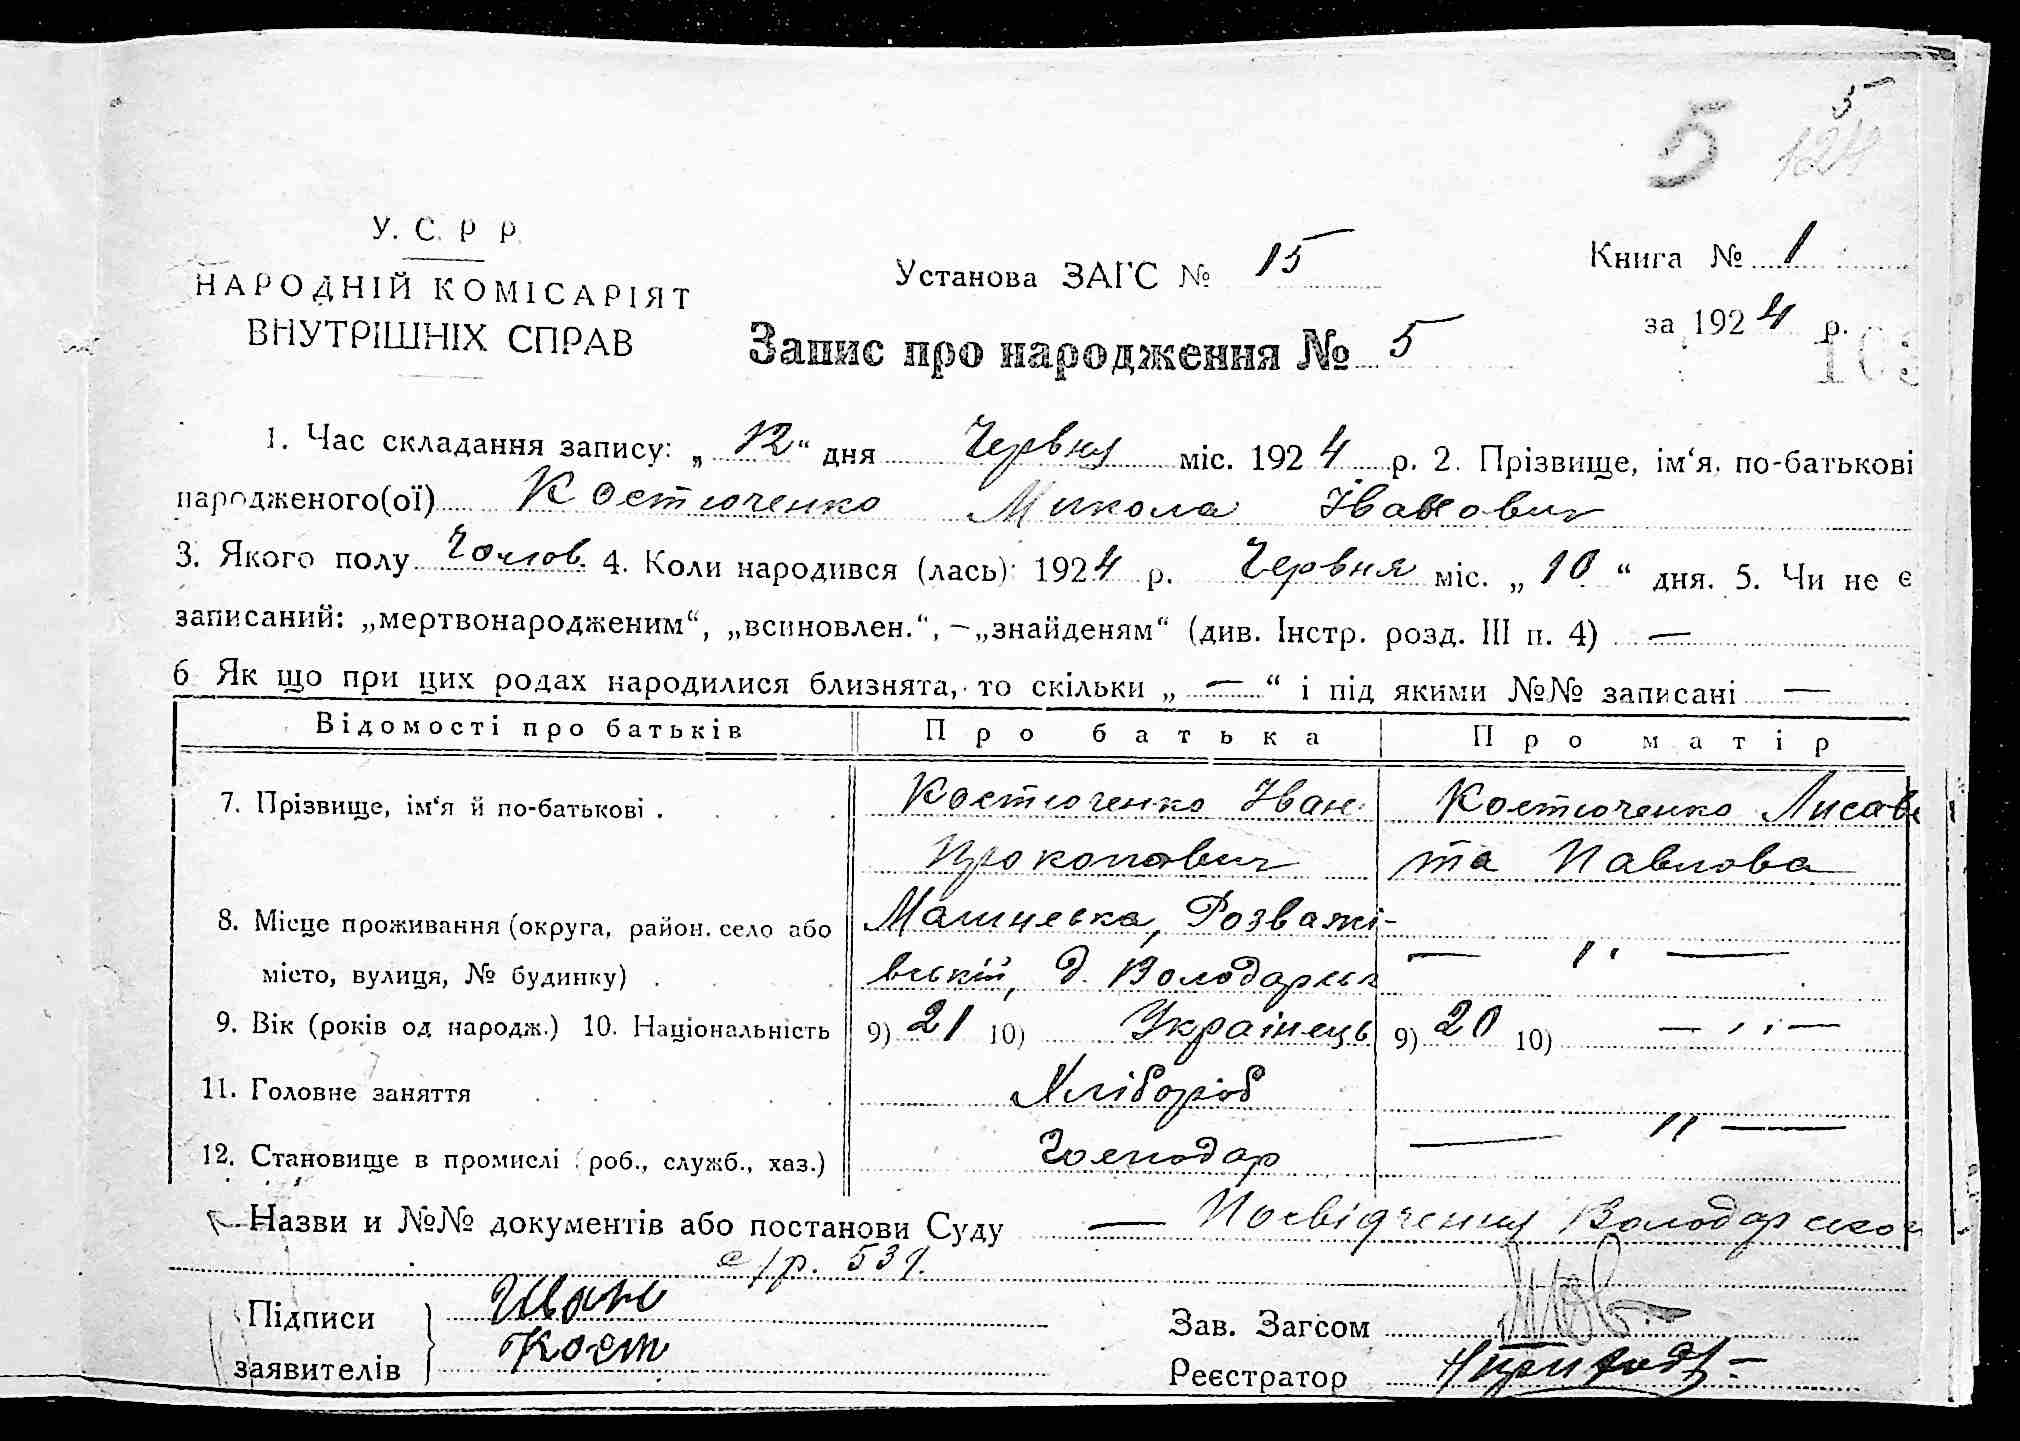 5
5
124
У. С. Р Р.
НАРОДНІЙ КОМІСАРІЯТ
ВНУТРІШНІХ СПРАВ
Установа ЗАГС № 15
Книга № 1
за 1924 р.
Запис про народження № 5
103
1. Час складання запису: „12“ дня Червня міс. 1924 р. 2. Прізвище, ім‘я, по-батькові
народженого(ої) Костюченко Микола Іванович
3. Якого полу Чолов. 4. Коли народився (лась): 1924 р. Червня міс. „10“ дня. 5. Чи не є
записаний: „мертвонародженим“, „всиновлен.“, –„знайденям“ (див. Інстр. розд. III п. 4) —
6 Як що при цих родах народилися близнята, то скільки „—“ і під якими №№ записані —
Відомості про батьків Про батька Про матір
7. Прізвище, ім‘я й по-батькові . Костюченко Іван Костюченко Лисаве
Прокопович та Павлова
8. Місце проживання (округа, район, село або Малинська, Розважі-
місто, вулиця, № будинку) . вській, д. Володарськ — " —
9. Вік (років од народж.) 10. Національність 9) 21 10) Українець 9) 20 10) — " —
11. Головне заняття Хлібороб
12. Становище в промислі (роб., служб., хаз.) Господар — " —
Назви и №№ документів або постанови Суду — Посвідчення Володарского
с/р. 539.
Підписи Иван
заявителів Кост
Зав. Загсом
Реєстратор